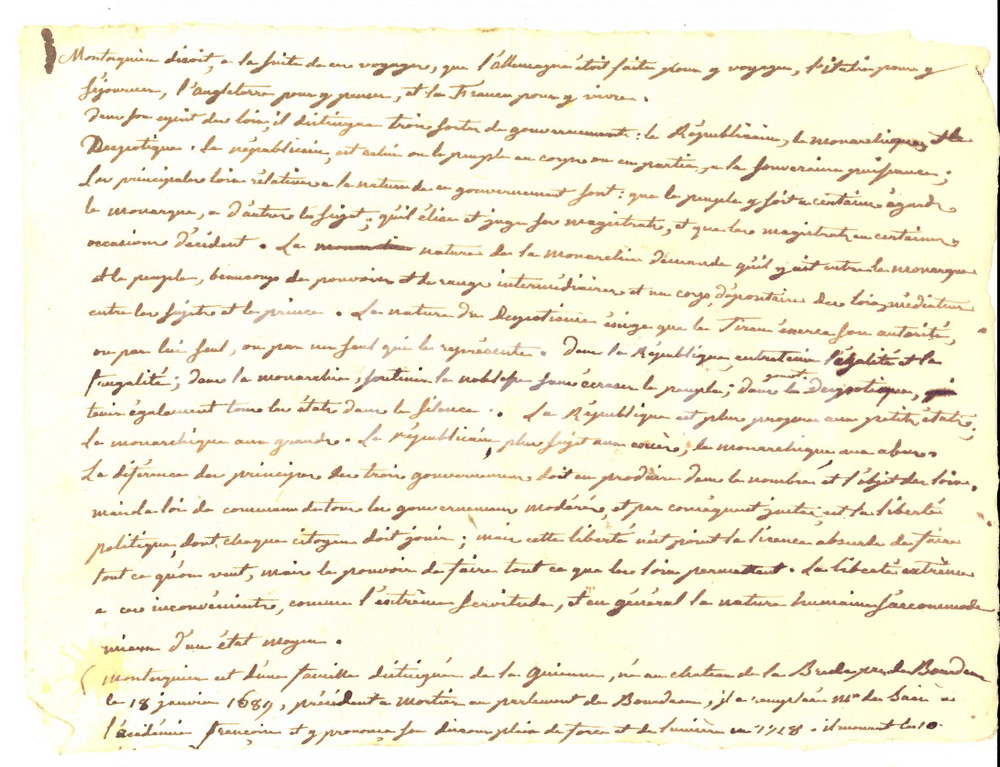 Montesquieu disoit, a la suite de ces voyages, que l'allemagne étoit faite pour y voyager, l'italie pour y
séjourner, l'angleterre pour y penser, et la France pour y vivre.
dans son esprit des loix, il distingue trois sortes de gouvernements: le Républicain, le monarchique, et le
Despotique. Le républicain, est celui ou le peuple en corps ou en partie, a la souveraine puissance;
Les principales loix rélatives a la nature de ce gouvernement sont: que le peuple y soit a certains égards
le monarque, a d'autres le sujet; qu'il élise et juge ses magistrats, et que les magistrats en certaines
occasions décident. La nature de la monarchie demande qu'il y ait entre le monarque
et le peuple, beaucoup de pouvoirs et de rangs intermédiaires et un corps dépositaire des loix, médiateur
entre les sujets et le prince. La nature du Despotisme éxige que le Tiran éxerce son autorité,
ou par lui seul, ou par un seul qui le représente. dans la République, entretenir l'égalité et la
frugalité; dans la monarchie, soutenir la noblesse sans écraser le peuple; dans le gouvt Despotique,
tenir également tous les états dans le silence. La République est plus propre aux petits états,
La monarchique aux grands. Le républicain, plus sujet aux excès; le monarchique, aux abus.
La diférence des principes des trois gouvernements doit en produire dans le nombre et l'objet des loix.
mais la loi de commune de tous les gouvernemens modérés, et par conséquent justes, est la liberté
politique, dont chaque citoyen doit jouir; mais cette liberté n'est point la licence absurde de faire
tout ce qu'on veut, mais le pouvoir de faire tout ce que les loix permettent. La liberté extrême
a ces inconvénients, comme l'extrême servitude, et en général la nature humaine s'accommode
mieux d'un état moyen.
(Montesquieu est d'une famille distinguée de la Guienne, né au chateau de la Brede près de Bourdeaux
le 18 janvier 1689, président a mortier au parlement de Bourdeaux, il a remplacé Mr de Saci a
l'académie françoise et y prononça son discours plein de force et de lumière en 1728. il mourut le 10